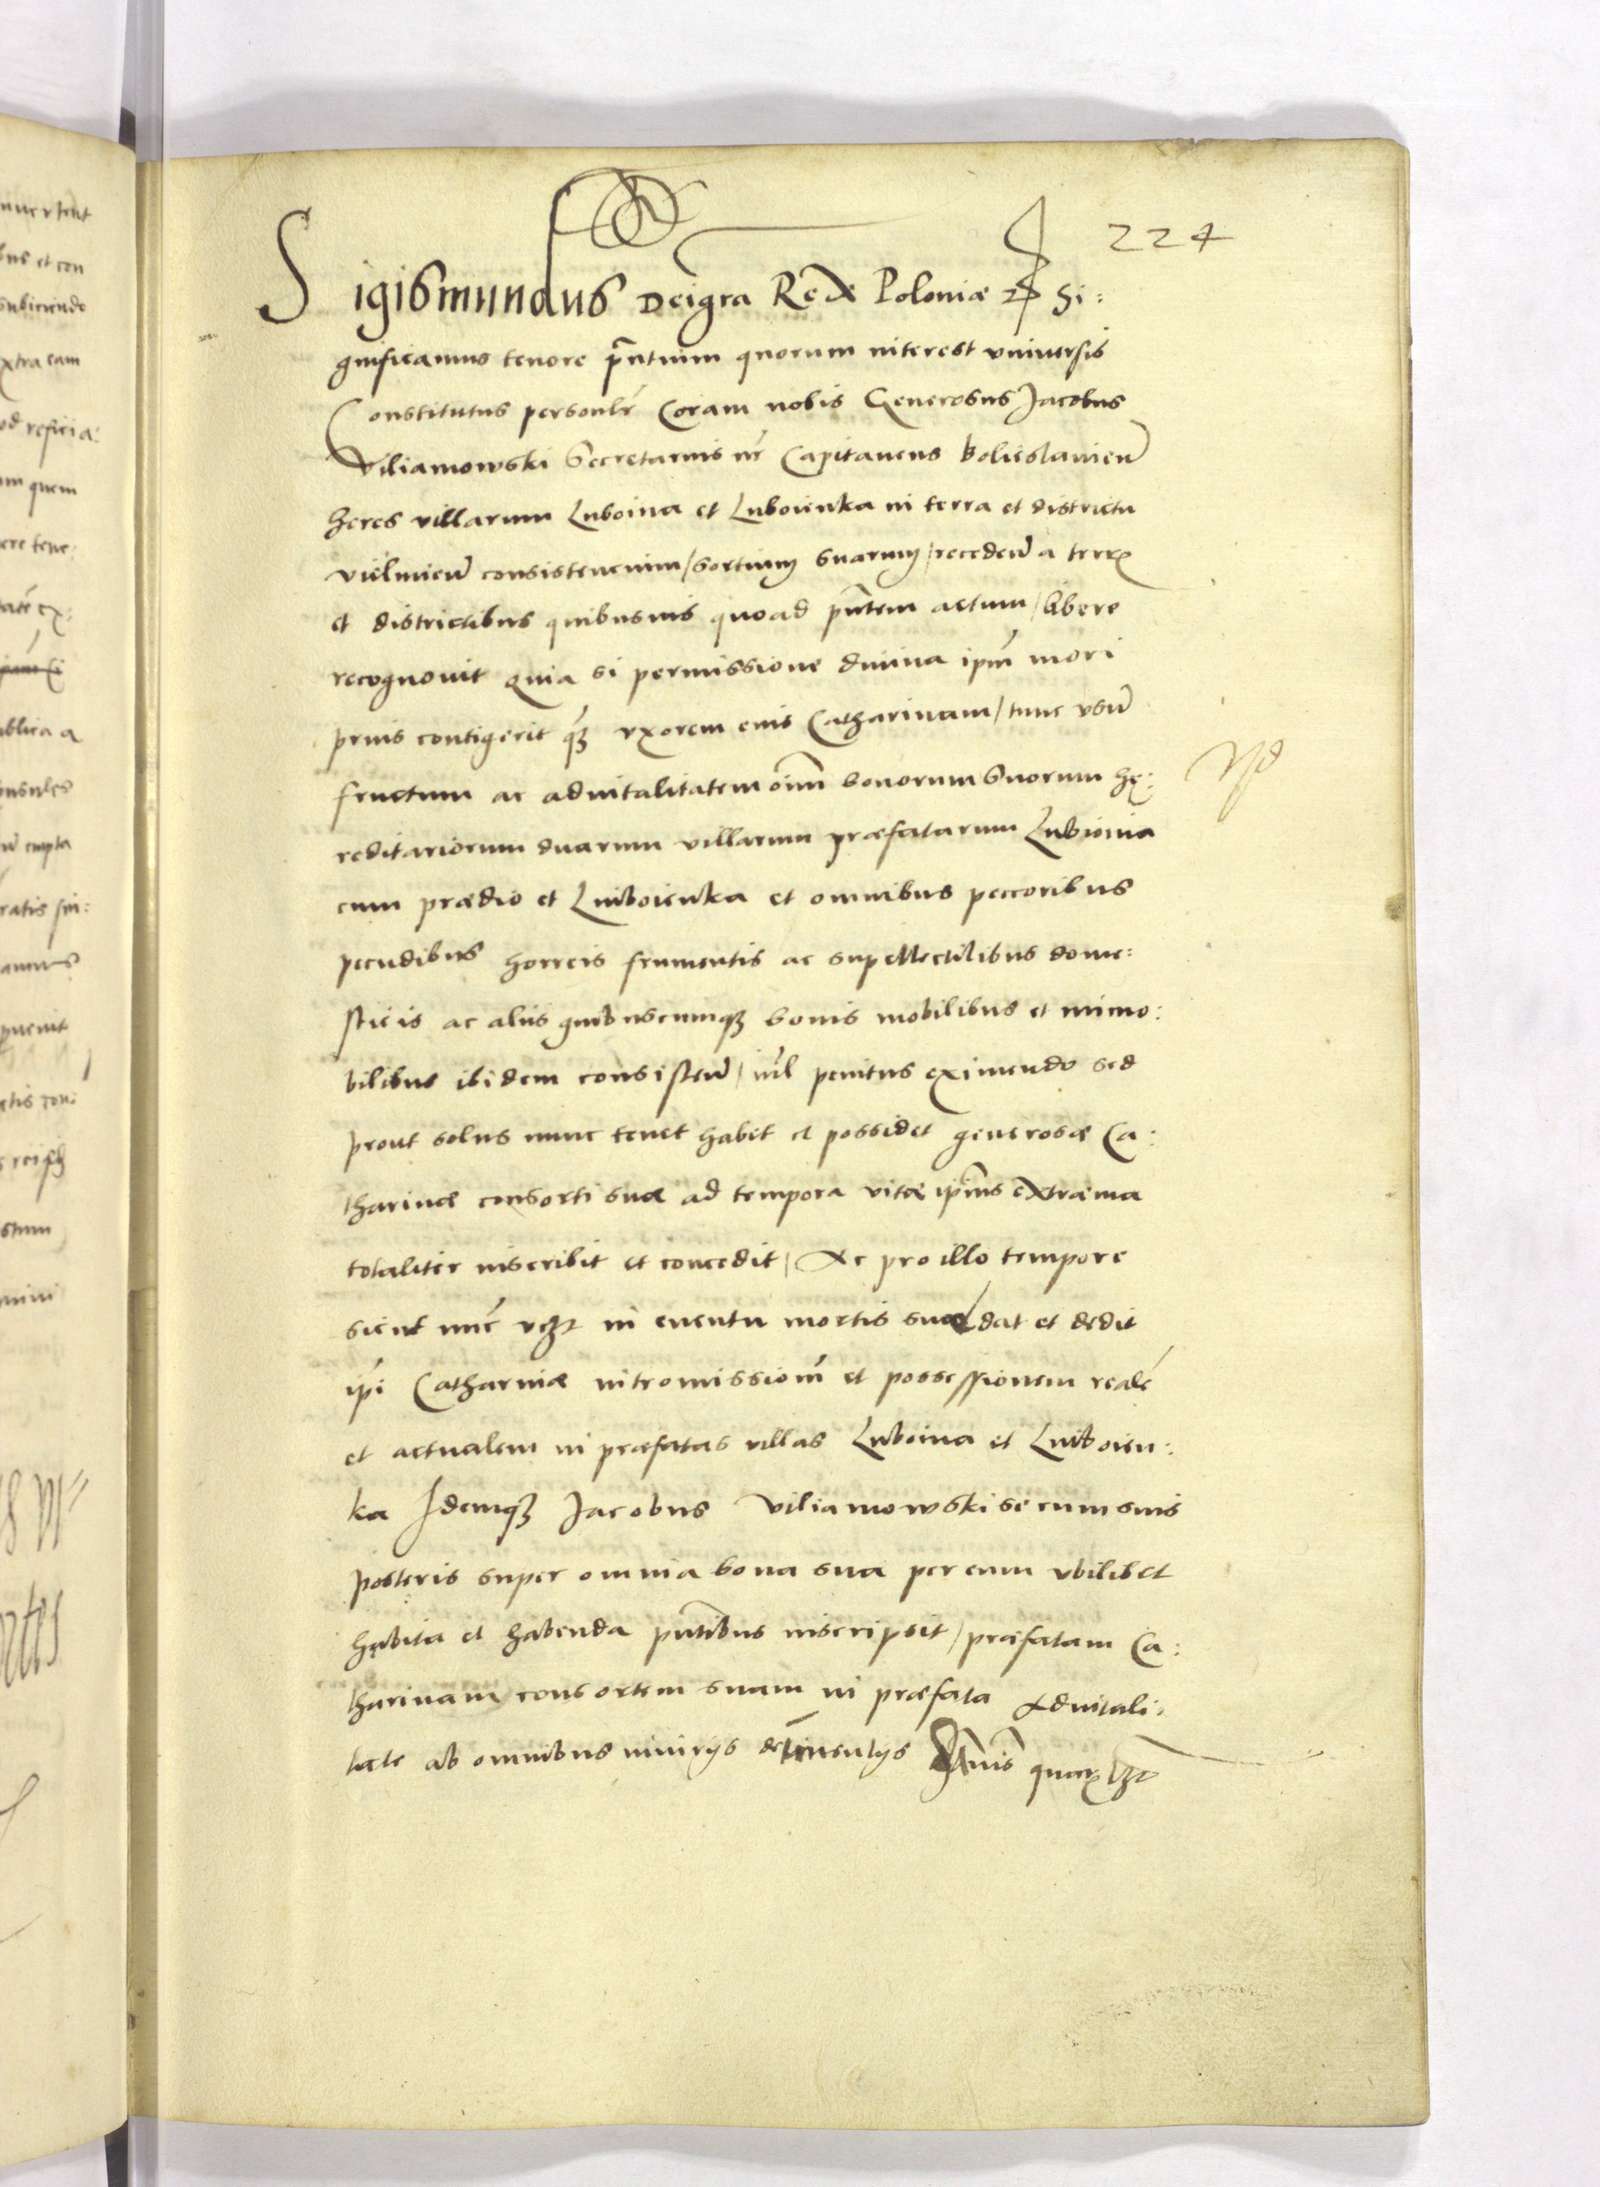 224
Sigismundus Dei gra Rex Poloniæ &c Si:
gnificamus tenore pñtium quorum interest vniuersis
Constitutus personlr Coram nobis Generosus Jacobus
Viliamowski Secretarius nr Capitaneus Bolieslauien
heres villarum Luboina et Luboienka in terra et districtu
Vielunien consistencium / sortium suarum / receden a terris
et districtibus quibusuis quoad pñtem actum / libere
recognouit Quia si permissione diuina ipm mori
prius contigerit q3 vxorem eius Catharinam / tunc vsu
fructum ac aduitalitatem oim bonorum suorum hę:
reditariorum duarum villarum præfatarum Luboinia
cum prædio et Luiboienka et omnibus peccoribus
pecudibus horreis frumentis ac supellectilibus dome:
sticis ac aliis quibuscumq3 bonis mobilibus et immo:
bilibus ibidem consisten / nil penitus eximendo sed
prout solus nunc tenet habet et possidet generosæ Ca:
tharinæ consorti suæ ad tempora vitæ ipius extræma
totaliter inscribit et concedit / Ac pro illo tempore
sicut nuc vcz in euentu mortis suæ / dat et dedit
ipi Catharinæ intromissiom et possessionem realé
et actualem in præfatas villas Luboina et Luiboien:
ka Idemq3 Jacobus Viliamowski se cum suis
posteris super omnia bona sua per eum vbilibet
hębita et habenda pñtibus inscripsit / præfatam Ca:
tharinam consortem suam in præfata Aduitali:
tæte ab omnibus iniurijs